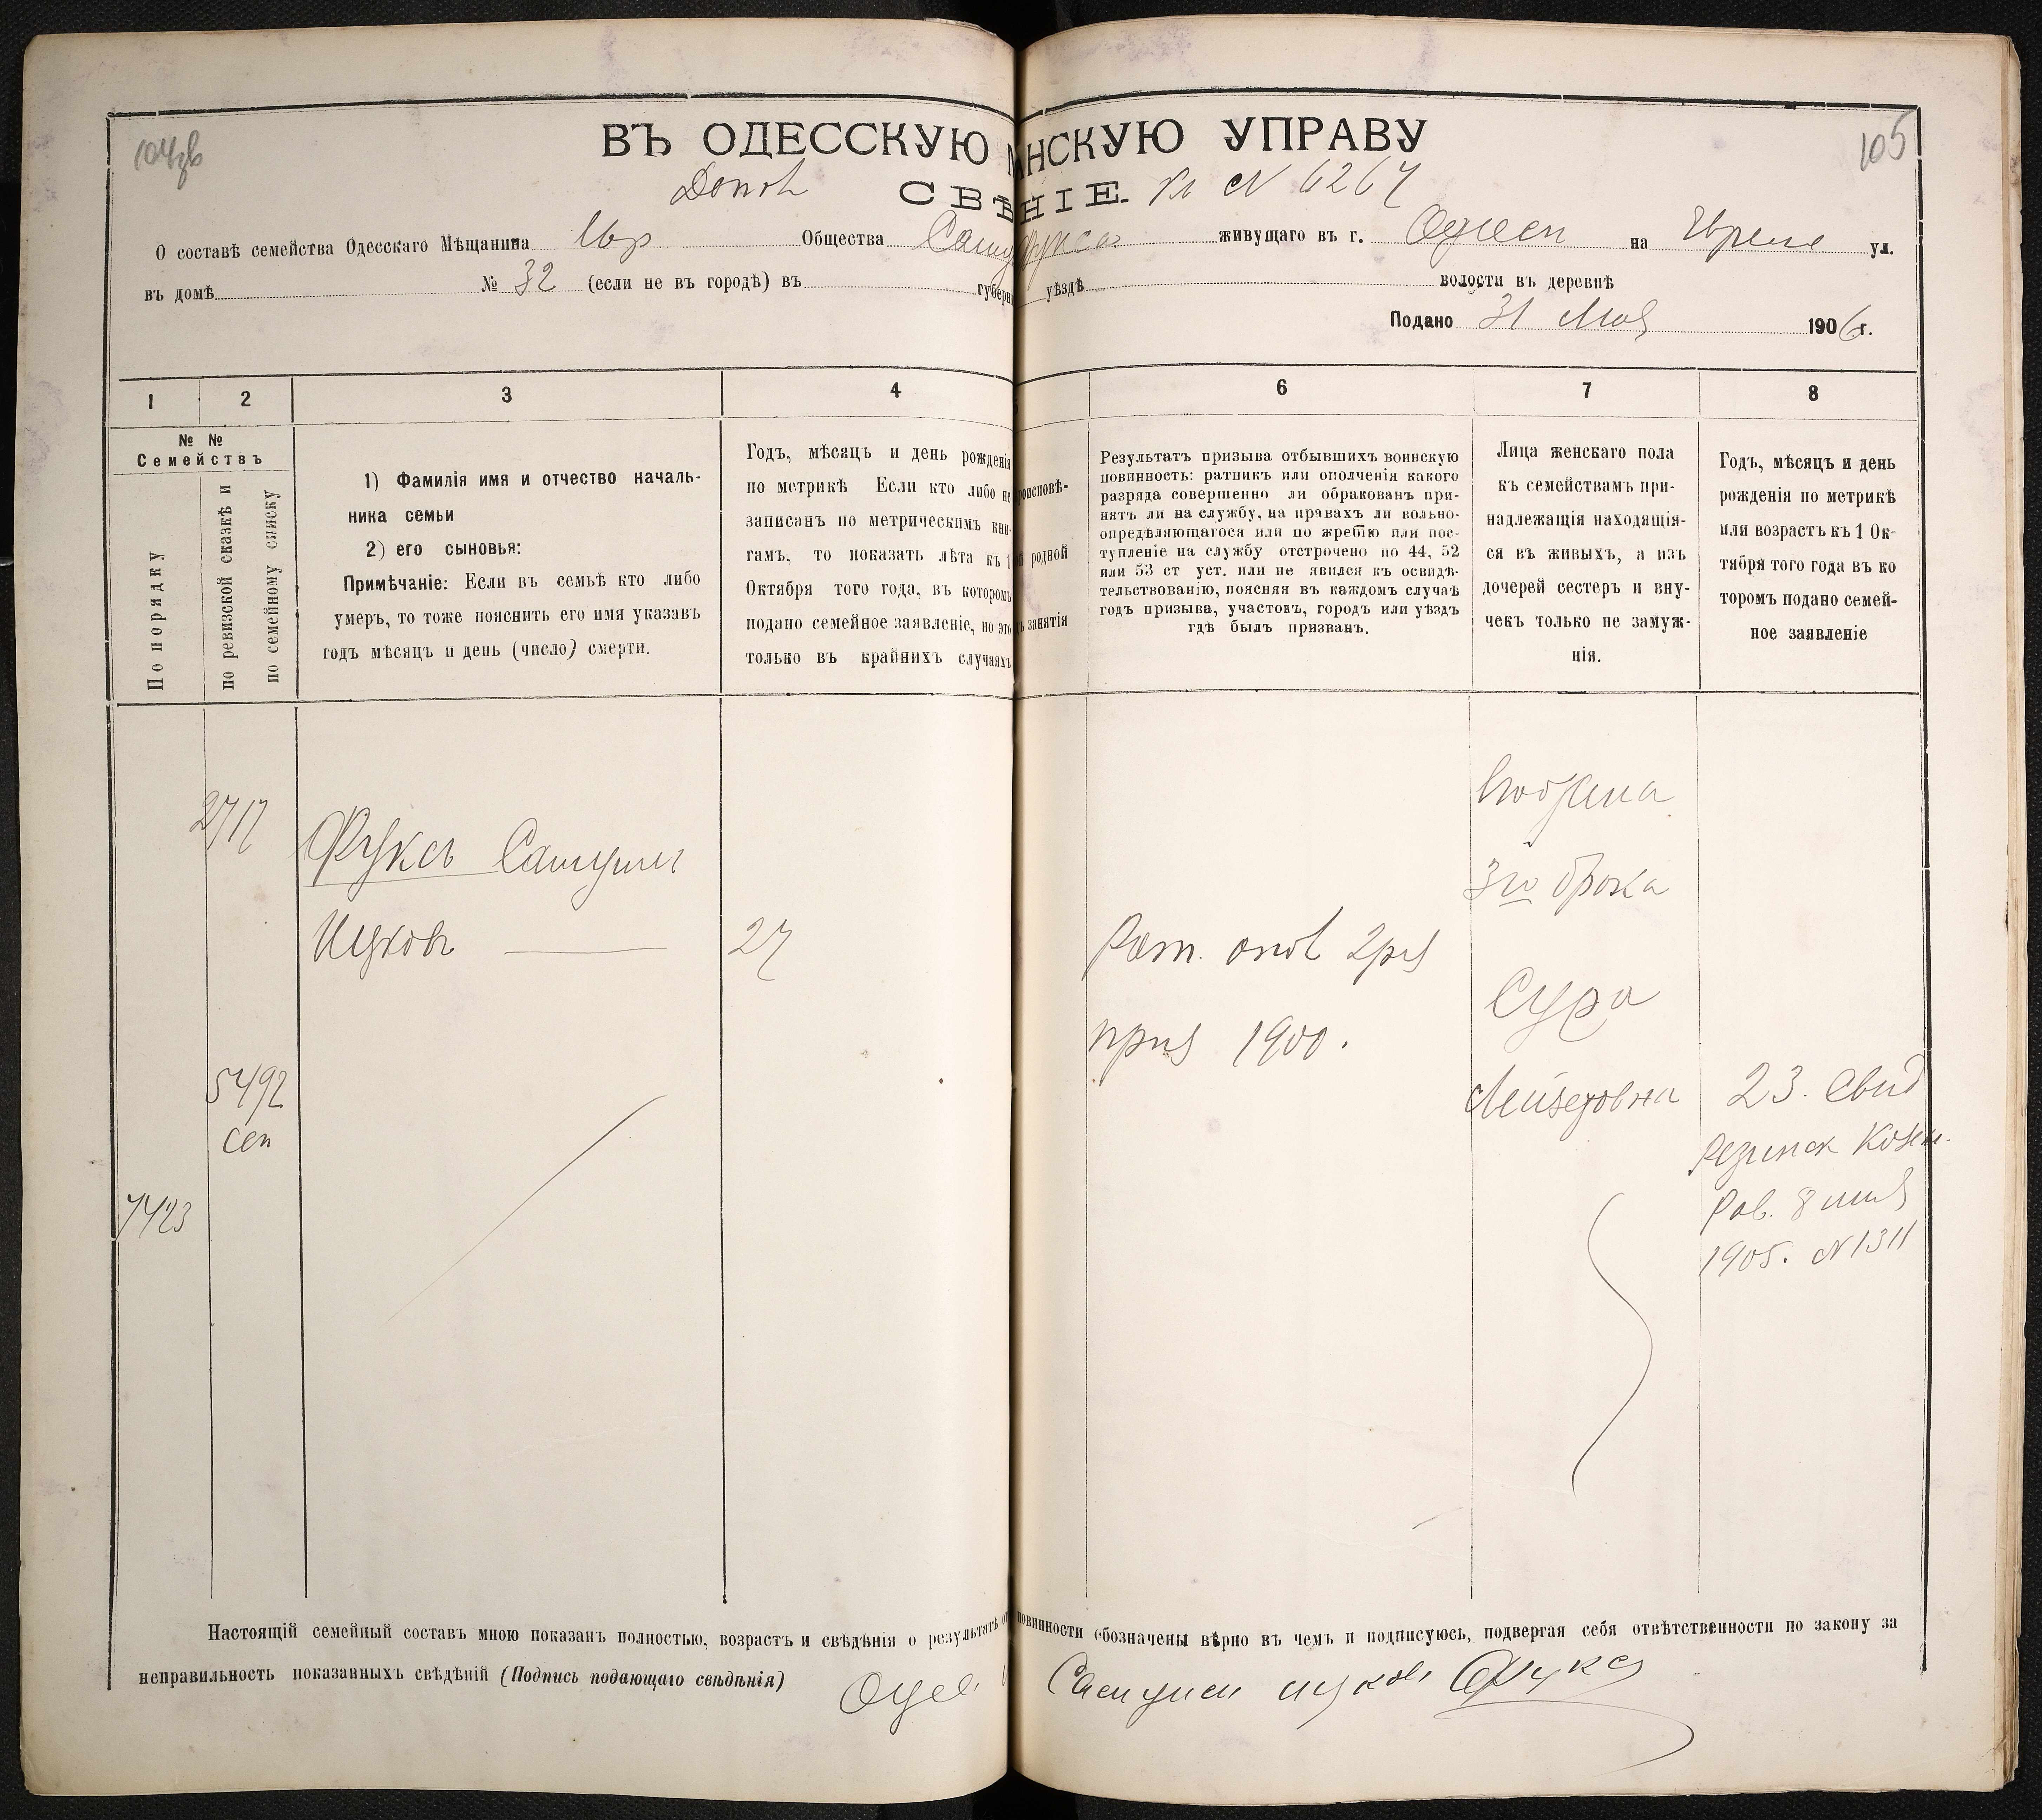 104зв
105
ВЪ ОДЕССКУЮ НСКУЮ УПРАВУ
Допол СВѢНІЕ. № 6267
О составѣ семейства Одесскаго Мѣщанина Евр Общества Саму Фукса живущаго въ г. Одессѣ на Еврейс ул.
въ домѣ № 32 (если не въ городѣ) въ губерн уѣздѣ волости въ деревнѣ
Подано 31 Мая 1906 г.
1 2 3 4 6 7 8
№ №
Семействъ
По порядку
по ревизской сказкѣ и
по семейному списку
1) Фамилія имя и отчество началь-
ника семьи
2) его сыновья:
Примѣчаніе: Если въ семьѣ кто либо
умеръ, то тоже пояснить его имя указавъ
годъ мѣсяцъ и день (число) смерти.
Годъ, мѣсяць и день рожденія
по метрикѣ Если кто либо не
записанъ по метрическимъ кни-
гамъ, то показать лѣта къ 1
Октября того года, въ которомъ
подано семейное заявленіе, но это
только въ крайнихъ случаяхъ
роисповѣ-
родной
занятія
Результатъ призыва отбывшихъ воинскую
повинность: ратникъ или ополченія какого
разряда совершенно ли обракованъ при-
нятъ ли на службу, на правахъ ли вольно-
опредѣляющагося или по жребію или пос-
тупленіе на службу отстрочено по 44, 52
или 53 ст уст. или не явился къ освидѣ-
тельствованію, поясняя въ каждомъ случаѣ
годъ призыва, участовъ, городъ или уѣздъ
гдѣ былъ призванъ.
Лица женскаго пола
къ семействамъ при-
надлежащія находящія-
ся въ живыхъ, а изъ
дочерей сестеръ и вну-
чекъ только не замуж-
нія.
Годъ, мѣсяцъ и день
рожденія по метрикѣ
или возрастъ къ 1 Ок-
тября того года въ ко
торомъ подано семей-
ное заявленіе
2717
Фуксъ Самуилъ
Ицковъ 27
5492
сен
7423
Рат. опол 2 раз
приз 1900.
3го брака
Сура
Лейзеровна
23. Свид
Резинск Казен.
Рав. 8 мая
1905. № 1311
Настоящій семейный составъ мною показанъ полностью, возрастъ и свѣдѣнія о результатѣ о повинности обозначены вѣрно въ чемъ и подписуюсь, подвергая себя отвѣтственности по закону за
неправильность показанныхъ свѣдѣній (Подпись подающаго свѣдѣнія) Одес Самуил ицков Фукс